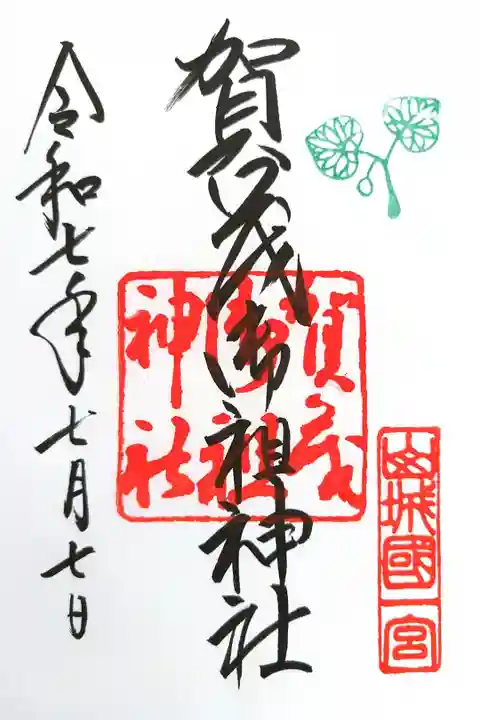 山城國一宮
賀茂御祖神社
賀茂御祖神社
令和七年七月七日